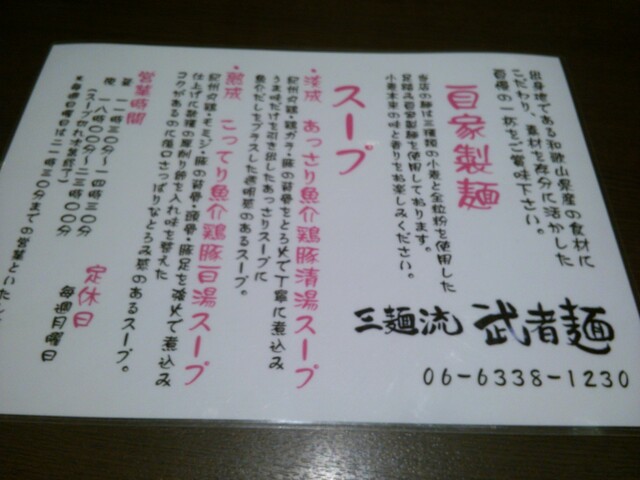 出身地である和歌山県産の食材に
こだわり、素材を存分に活かした
自慢の一杯をご賞味下さい。
自家製麺
当店の麺は三種類の小麦と全粒粉を使用した
足踏み自家製麺を使用しております。
小麦本来の味と香りをお楽しみください。
スープ
・淡成 あっさり魚介鶏豚清湯スープ
紀州の鶏・鶏ガラ・豚の背骨をとろ火で丁寧に煮込み
うま味だけを引き出したあっさりスープに
魚介だしをプラスした透明感のあるスープ。
・熟成 こってり魚介鶏豚白湯スープ
紀州の鶏・モミジ・豚の背骨・頭骨・豚足を強火で煮込み
仕上げに数種の厚削り節を入れ味を整えた
コクがあるのに後口さっぱりなとろみ感のあるスープ。
営業時間
昼 一一時三〇分〜一四時三〇分
夜 一八時〇〇分〜二三時〇〇分
(スープ切れ次第終了)
定休日
毎週月曜日
三麺流 武者麺
06-6338-1230